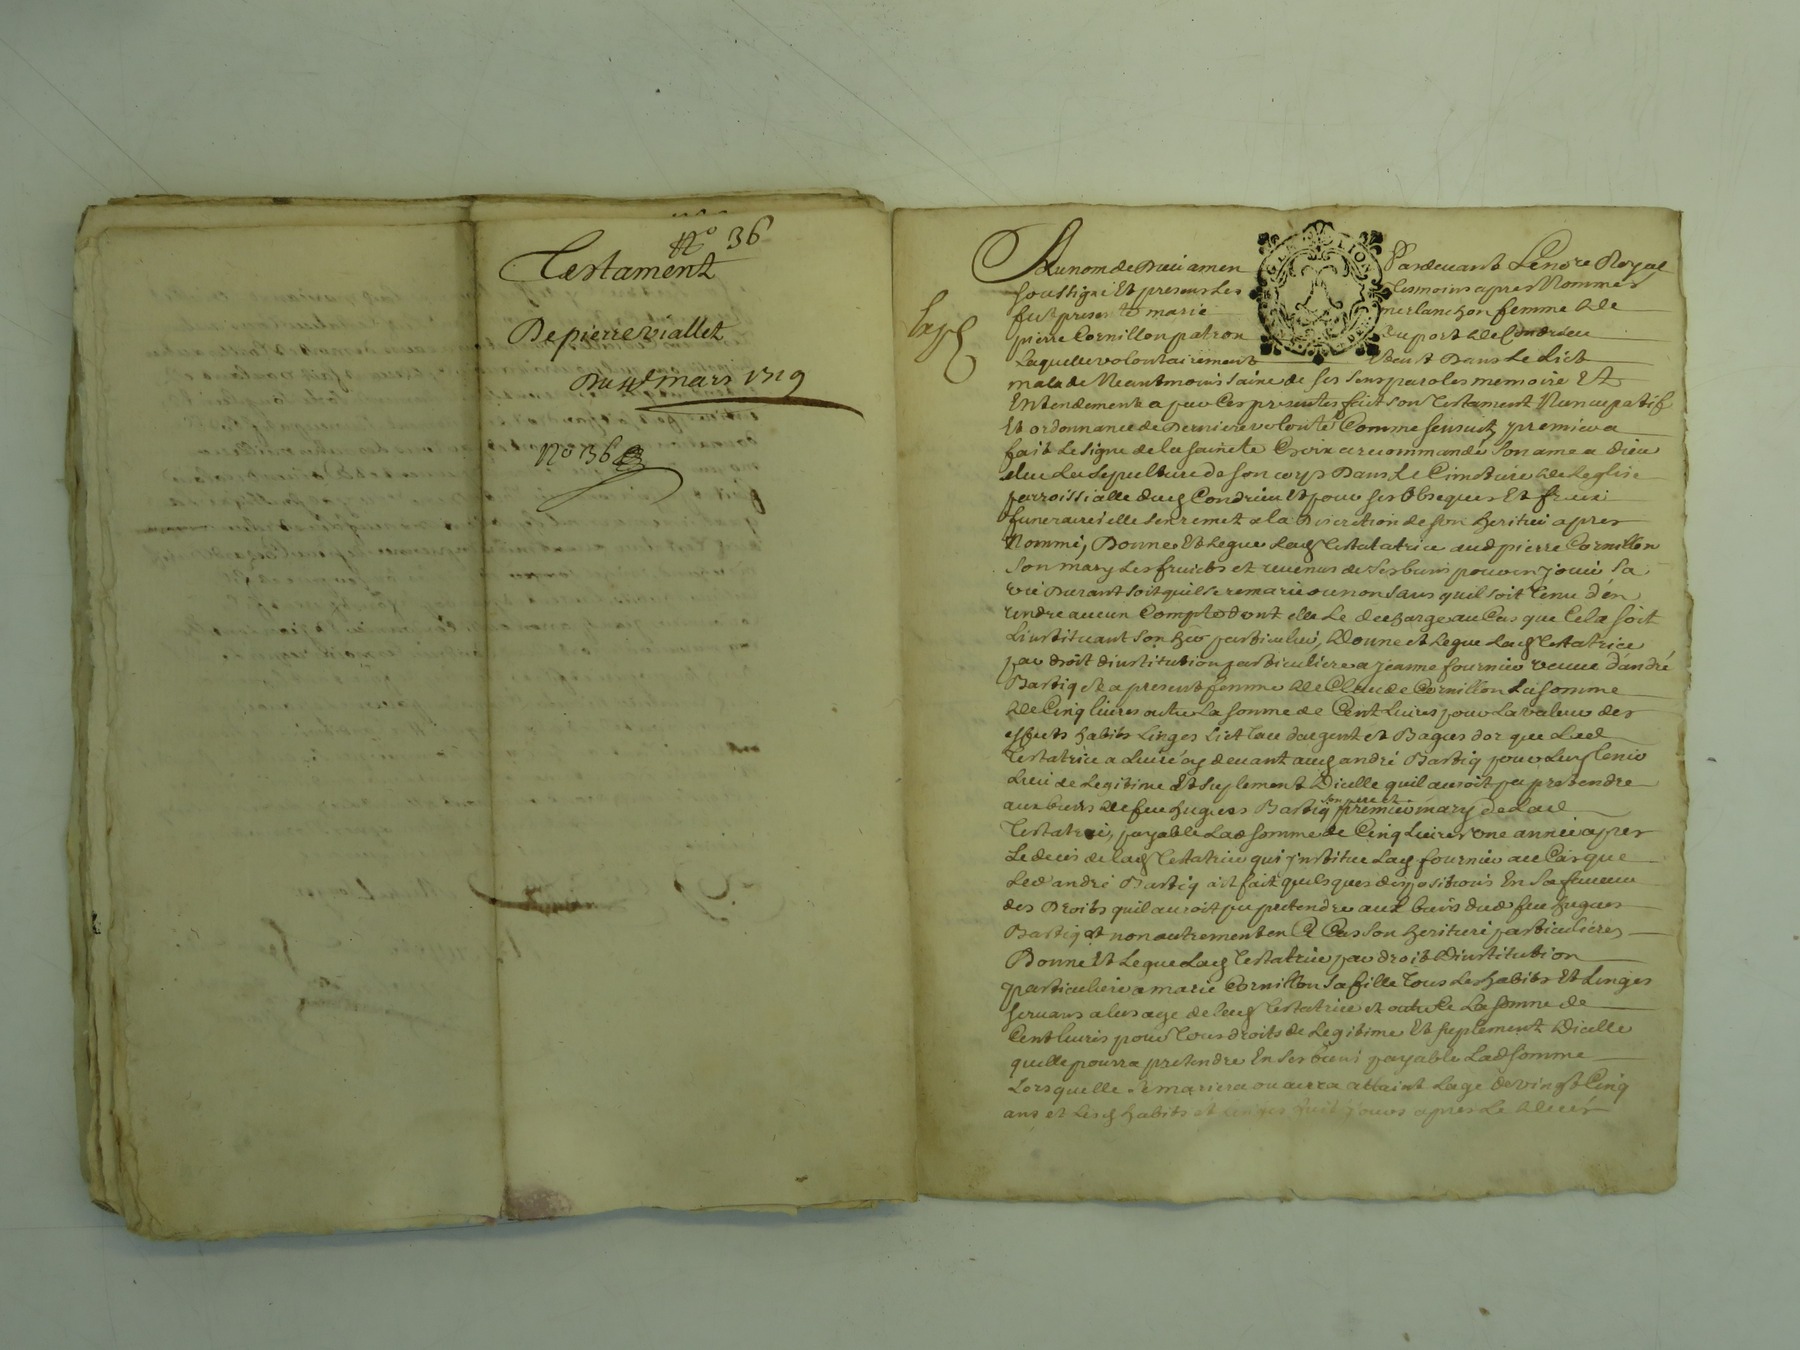 N° 36
Testament
De pierre viallet
Du mars 1719
N° 136
Au nom de Dieu amen Pardevant Le no.re Royal
soussigné Et presens Les tesmoins apres Nommés
fust presente marie merlanchon femme de
pierre Cornillon patron du port de Condrieu
Laquelle volontairement Estant Dans Le Lict
malade Neantmoins saine de ses sens paroles memoire Et
Entendement a par Ces presentes fait son Testament Nuncupatif
Et ordonnance de Derniere volonté Comme sensuit premier a
fait Le signe de la saincte Croix a recommandé son ame a Dieu
elu La sepulture de son corps Dans Le Cimetiere de Leglise
parroissialle dud Condrieu Et pour ses Obseques Et fraix
funeraires elle sen remet a la Discretion de son heritier apres
Nommé, Donne Et Legue lad Testatrice aud pierre Cornillon
son mary Les fruicts et revenus de ses biens pour en jouir sa
vie Durant soit quil se remarie ou non sans quil soit Tenu d'en
rendre aucun Compte dont elle Le decharge au Cas que Cela soit
Linstituant son her particulier, Donne et Legue Lad Testatrice
par droit dinstitution particuliere a jeanne fournier veuve d'andré
Bastiq et a present femme de Claude Cornillon La somme
de Cinq livres outre La somme de Cent Livres pour La valeur des
effects habits Linges Lict d'argent et Bagues dor que Lad
Testatrice a Livré cy devant aud andré Bastiq pour Luy Tenir
Lieu de Legitime Et suplement Dicelle quil auroit pu pretendre
aux biens de feu hugues Bastiq son pere et premier mary de Lad
Testatrice, payable Lad somme de Cinq Livres une année apres
Le deces de lad Testatrice qui institue Lad fournier au Cas que
Led andré Bastiq ait fait quelques dispositions En sa faveur
des Droits quil auroit pu pretendre aux biens dud feu hugues
Bastiq et non autrement en Ce Cas son heritiere particuliere,
Donne Et Legue Lad Testatrice par droit Dinstitution
particuliere a marie Cornillon sa fille Tous Les habits Et Linges
servans a lusage de lad Testatrice et outre Ce La somme de
Cent livres pour Tous droits de Legitime Et suplement Dicelle
quelle pourra pretendre En ses biens payable Lad somme
Lors quelle se mariera ou aura attaint Lage de vingt Cinq
ans et Lesd habits et Linges huit jours apres Le deces